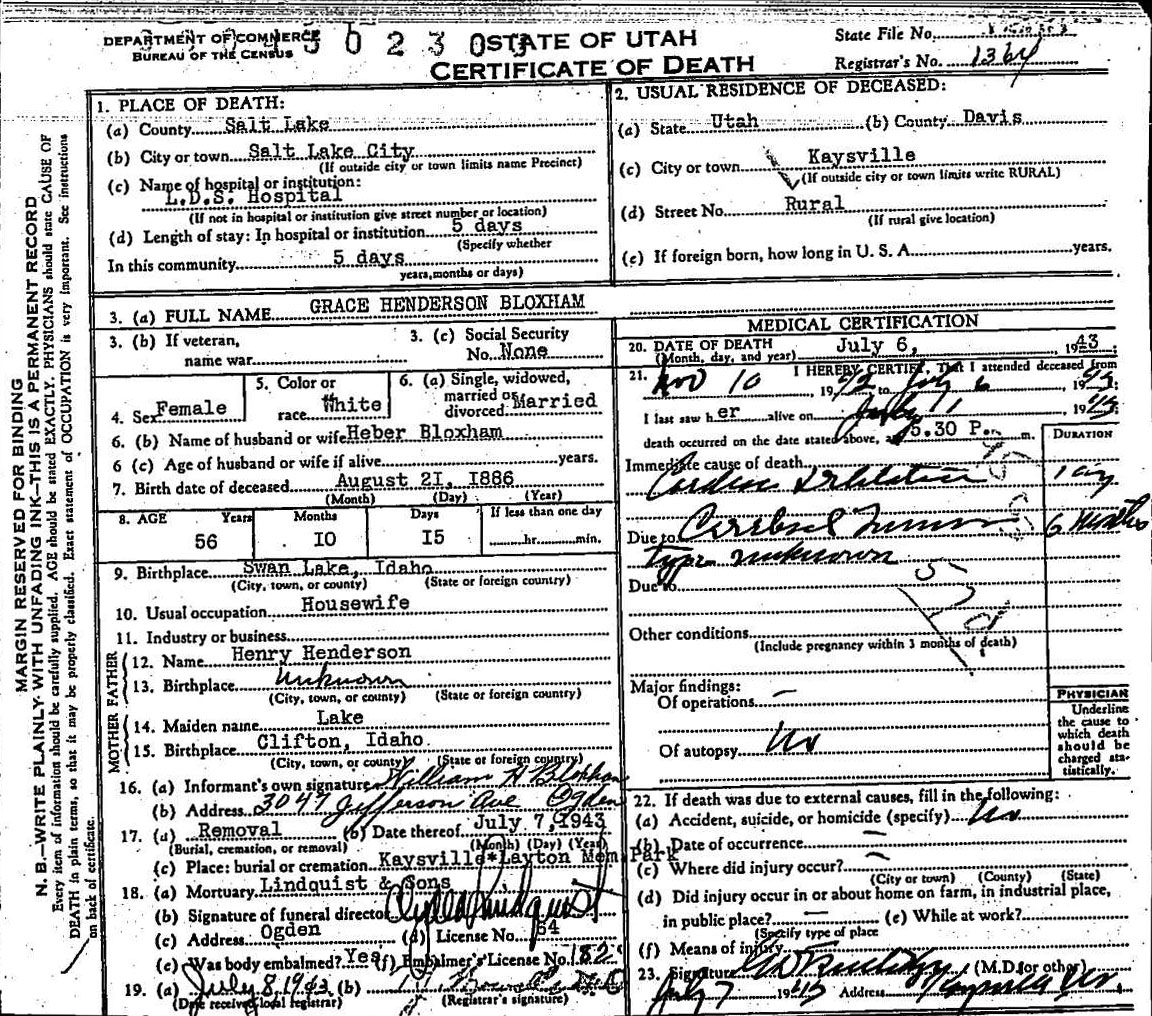 DEPARTMENT OF COMMERCE
BUREAU OF THE CENSUS
STATE OF UTAH
CERTIFICATE OF DEATH
State File No.
Registrar's No. 1364
MARGIN RESERVED FOR BINDING
N. B.—WRITE PLAINLY WITH UNFADING INK—THIS IS A PERMANENT RECORD
Every item of information should be carefully supplied. AGE should be stated EXACTLY. PHYSICIANS should state CAUSE OF
DEATH in plain terms, so that it may be properly classified. Exact statement of OCCUPATION is very important. See instructions
on back of certificate.
1. PLACE OF DEATH:
(a) County Salt Lake
(b) City or town Salt Lake City
(If outside city or town limits name Precinct)
(c) Name of hospital or institution:
L.D.S. Hospital
(If not in hospital or institution give street number or location)
(d) Length of stay: In hospital or institution 5 days
(Specify whether
In this community 5 days
years, months or days)
2. USUAL RESIDENCE OF DECEASED:
(a) State Utah (b) County Davis
(c) City or town Kaysville
(If outside city or town limits write RURAL)
(d) Street No. Rural
(If rural give location)
(e) If foreign born, how long in U. S. A. years.
3. (a) FULL NAME GRACE HENDERSON BLOXHAM
3. (b) If veteran,
name war
3. (c) Social Security
No. None
4. Sex Female
5. Color or
race White
6. (a) Single, widowed,
married or
divorced Married
6. (b) Name of husband or wife Heber Bloxham
6 (c) Age of husband or wife if alive years.
7. Birth date of deceased August 2I, I886
(Month) (Day) (Year)
8. AGE Years Months Days If less than one day
56 IO I5 hr. min.
9. Birthplace Swan Lake, Idaho
(City, town, or county) (State or foreign country)
10. Usual occupation Housewife
11. Industry or business
FATHER
12. Name Henry Henderson
13. Birthplace Unknown
(City, town, or county) (State or foreign country)
MOTHER
14. Maiden name Lake
15. Birthplace Clifton, Idaho.
(City, town, or county) (State or foreign country)
16. (a) Informant's own signature William H Bloxham
(b) Address 3047 Jefferson Ave Ogden
17. (a) Removal (b) Date thereof July 7, 1943
(Burial, cremation, or removal) (Month) (Day) (Year)
(c) Place: burial or cremation Kaysville*Layton Mem Park
18. (a) Mortuary Lindquist & Sons
(b) Signature of funeral director Clyde Lindquist
(c) Address Ogden (d) License No. 64
(e) Was body embalmed? Yes (f) Embalmer's License No. 182
19. (a) July 8 1943 (b)
(Date received local registrar) (Registrar's signature)
MEDICAL CERTIFICATION
20. DATE OF DEATH July 6, 1943
(Month, day, and year)
21. I HEREBY CERTIFY, That I attended deceased from
Nov 10 1942 to July 6 1943
I last saw her alive on July 1943
death occurred on the date stated above, at 5.30 P. m.
DURATION
Immediate cause of death
Cardiac 1 day
Due to Cerebral Tumor 6 Months
type unknown
Due to
Other conditions
(Include pregnancy within 3 months of death)
Major findings:
Of operations —
Of autopsy No
PHYSICIAN
Underline
the cause to
which death
should be
charged sta-
tistically.
22. If death was due to external causes, fill in the following:
(a) Accident, suicide, or homicide (specify) No
(b) Date of occurrence —
(c) Where did injury occur? —
(City or town) (County) (State)
(d) Did injury occur in or about home on farm, in industrial place,
in public place? — (e) While at work?
(Specify type of place
(f) Means of injury
23. Signature (M.D. or other)
July 7 1943 Address Kaysville